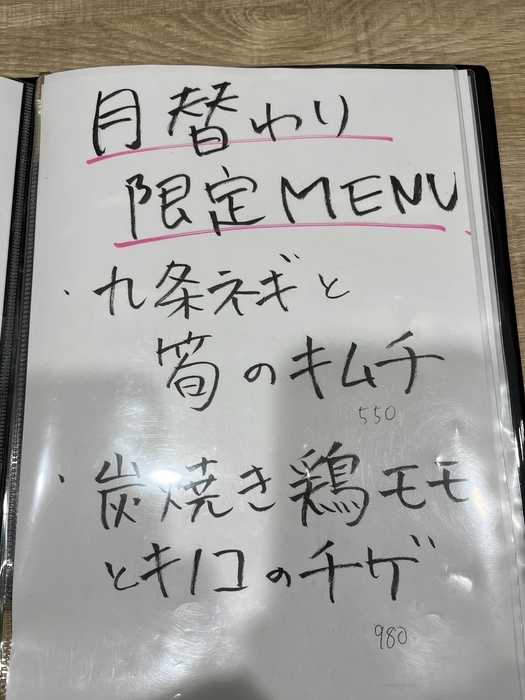 月替わり
限定MENU
・九条ネギと
筍のキムチ
550
・炭焼き鶏モモ
とキノコのチゲ
980